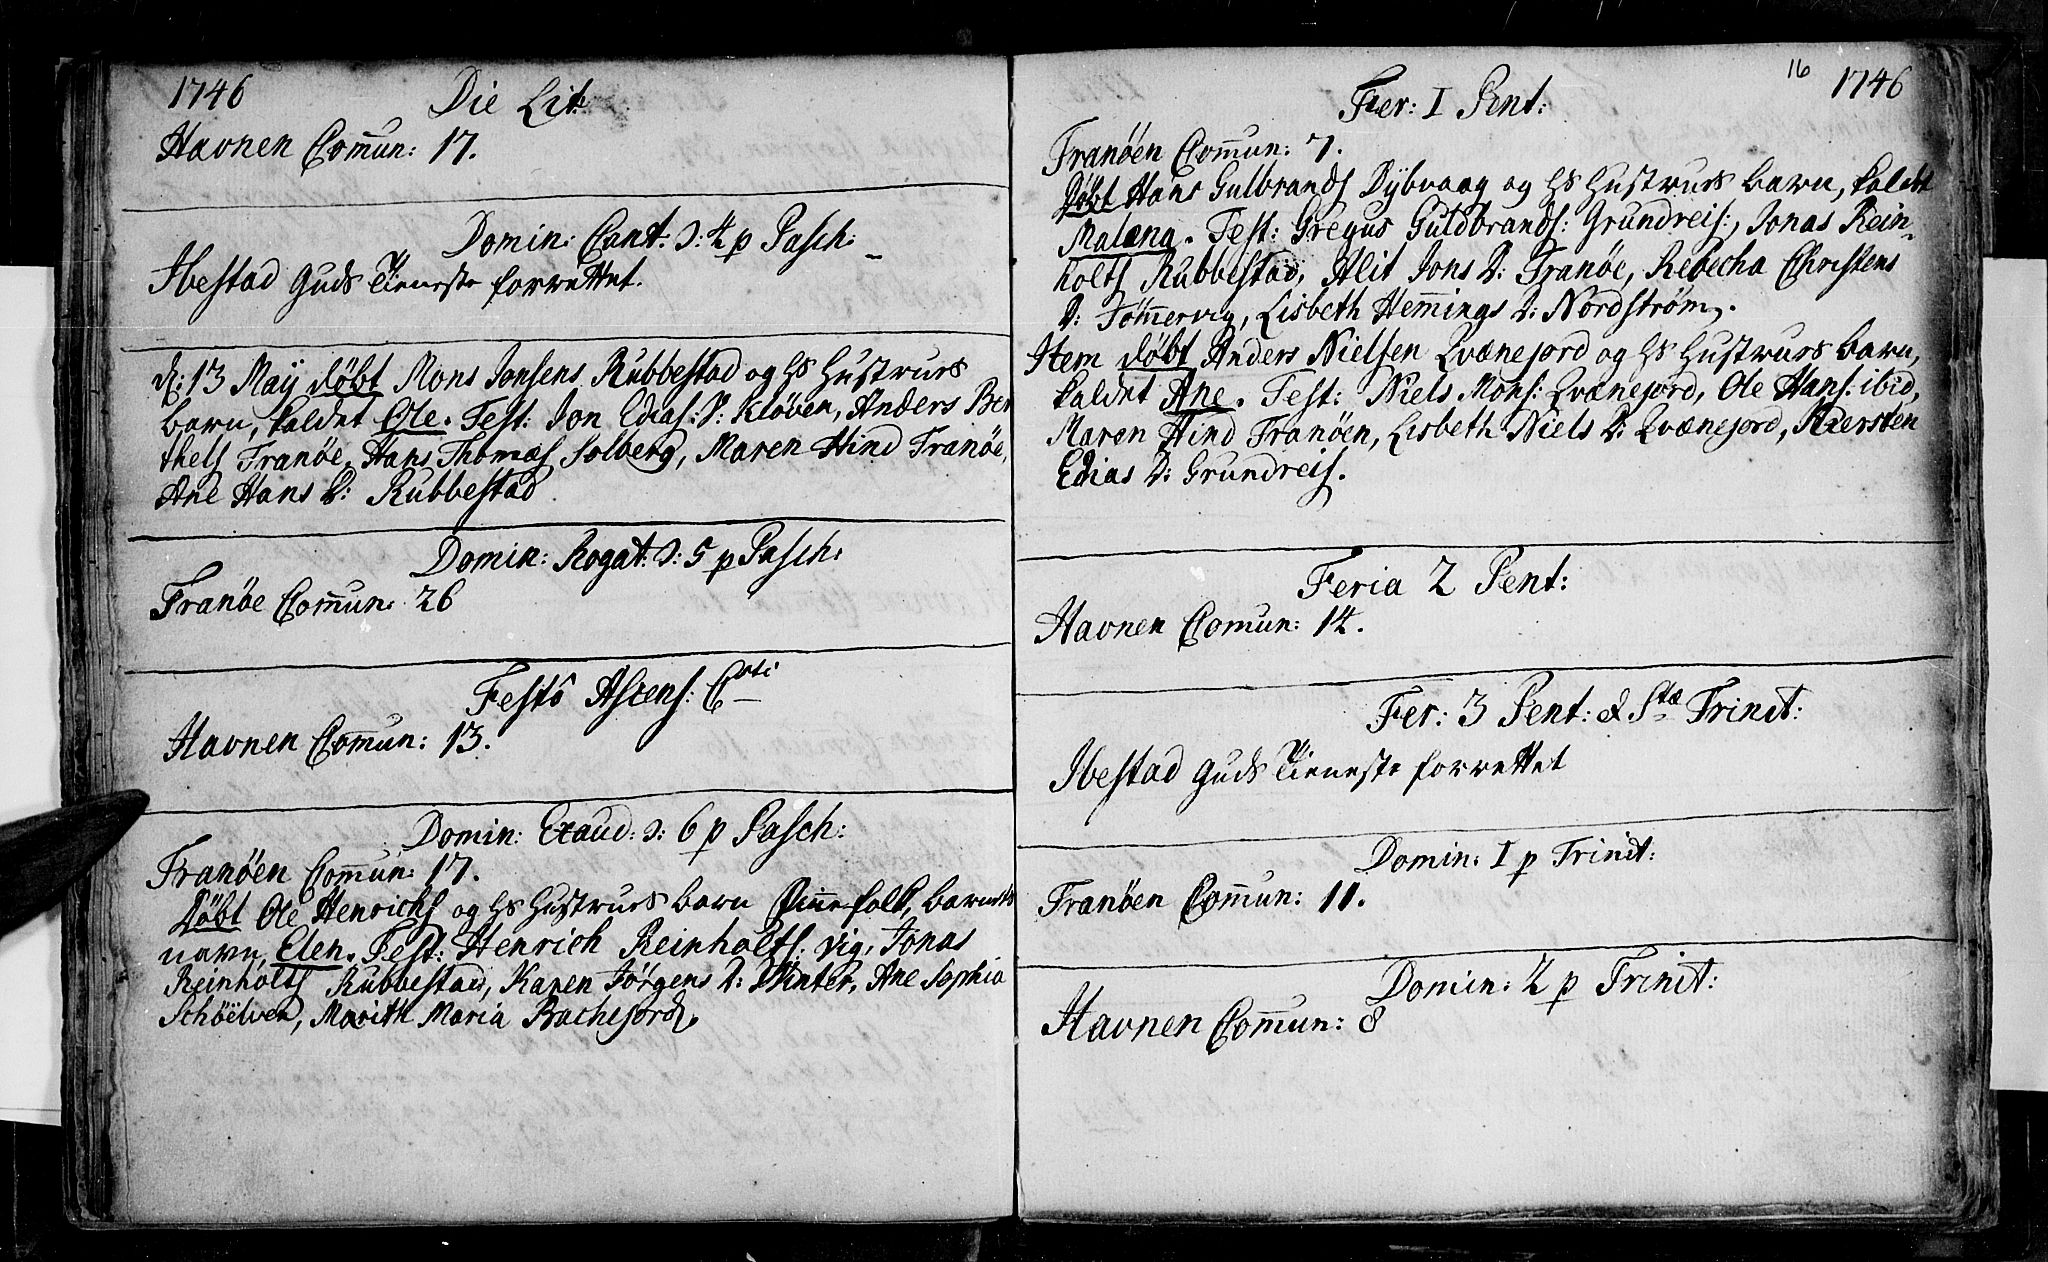 1746
Die Lit:
Havnen Comun: 17.
Domin: Cant: ɔ: 4 p Pasch:
Ibestad Guds Tieneste forrettet.
d: 13 Maij döbt Mons Jonsens Rubbestad og hs Hustrurs
barn, kaldet Ole. Test: Jon Edias: S: Klöven, Anders Ber
thels Franöe, Hans Thomæs Solberg, Maren Hind Franöe,
Ane Hans D: Rubbestad
Domin: Rogat: ɔ: 5 p Pasch:
Franöe Comun: 26
Festo Ascens: Csti
Havnen Comun: 13.
Domin: Exaud: ɔ: 6 p Pasch:
Franöen Comun: 17.
Döbt Ole Henrichs og hs Hustrurs barn Finnefolk, barnets
navn, Elen. Test: Henrich Reinholts: vig, Jonas
Reinholts Rubbestad, Karen Jörgens D: Vinter, Ane Sophia
Schöelven, Marith Maria Bachejord.
16 1746
Fer: I Pent:
Franöen Comun: 7.
Döbt Hans Gulbrands Dybvaag og hs Hustrurs barn, kaldet
Malæna. Test: Gregus Guldbrands: Grundreis:, Jonas Rein-
holts Rubbestad, Alit Jons D: Franöe, Rebecha Christens
D: Tömmervig, Lisbeth Hemings D: Nordström.
Item döbt Anders Nielsen Qvænejord og hs Hustrurs barn,
kaldet Ane. Test: Niels Mons: Qvænejord, Ole Hans: ibid,
Maren Hind Franöen, Lisbeth Niels D: Qvænejord, Kiersten
Edias D: Grundreis.
Feria 2 Pent:
Havnen Comun: 14.
Fer: 3 Pent: & Stæ Trinit:
Ibestad Guds Tieneste forrettet
Domin: I p Trinit:
Franöen Comun: 11.
Domin: 2 p Trinit:
Havnen Comun: 8